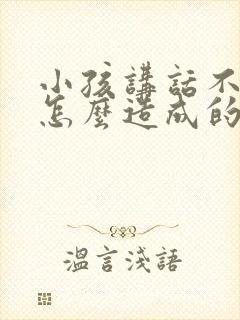 小孩講話不
怎麼造成的
溫言淺語